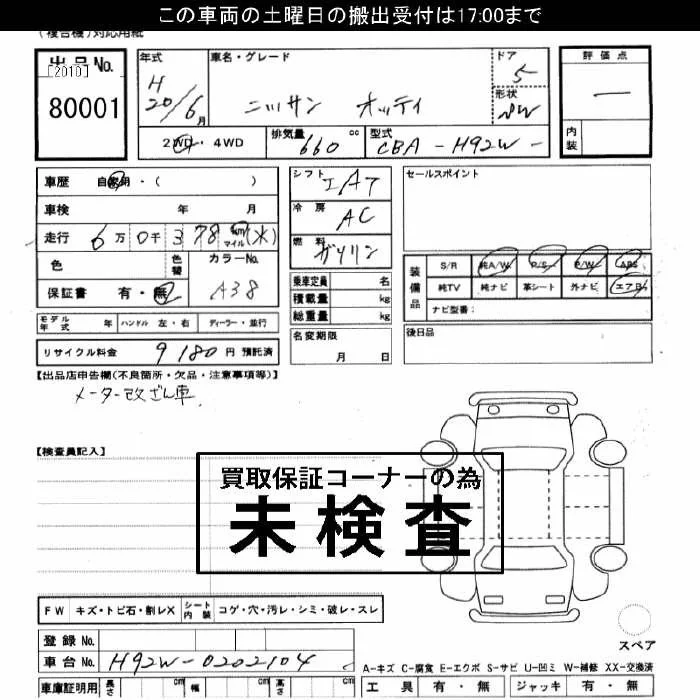 この車両の土曜日の搬出受付は17:00まで
(複合機)対応用紙
出品No.
[2010]
80001
年式
H
20/6月
車名・グレード
ニッサン オッティ
ドア
5
形状
評価点
―
内装
2WD・4WD
排気量 660 cc
型式 CBA-H92W-
車歴 自家用・( )
車検 年 月
走行 6万0千378 km マイル (*)
色 色替 カラーNo.
A38
保証書 有・無
モデル年式 年 ハンドル 左・右 ディーラー・並行
リサイクル料金 9180円 預託済
シフト IAT
冷房 AC
燃料 ガソリン
乗車定員 名
積載量 kg
総重量 kg
名変期限
月 日
セールスポイント
装備品
S/R 純A/W P/S P/W ABS
純TV 純ナビ 革シート 外ナビ エアB
ナビ型番:
後日品
【出品店申告欄(不良箇所・欠品・注意事項等)】
メーター改ざん車
【検査員記入】
買取保証コーナーの為
未検査
FW キズ・トビ石・割レX シート内装 コゲ・穴・汚レ・シミ・破レ・スレ
登録No.
車台No. H92W-0202104
車庫証明用 長さ cm 幅 cm 高さ cm
スペア
A-キズ C-腐食 E-エクボ S-サビ U-凹ミ W-補修 XX-交換済
工具 有・無 ジャッキ 有・無